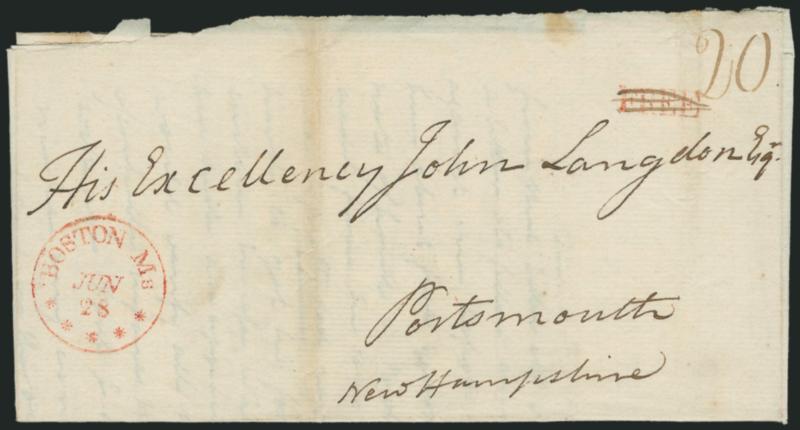 20
FREE
His Excellency John Langdon Esqr.
BOSTON Ms
JUN
28
Portsmouth
New Hampshire